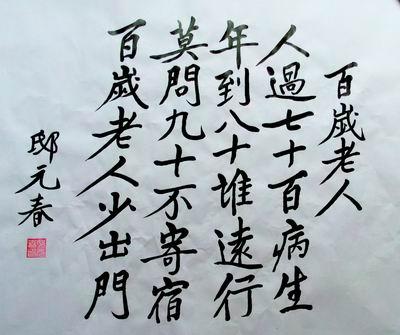 百歲老人
人過七十百病生
年到八十堆遠行
莫問九十不寄宿
百歲老人少出門
邸元春